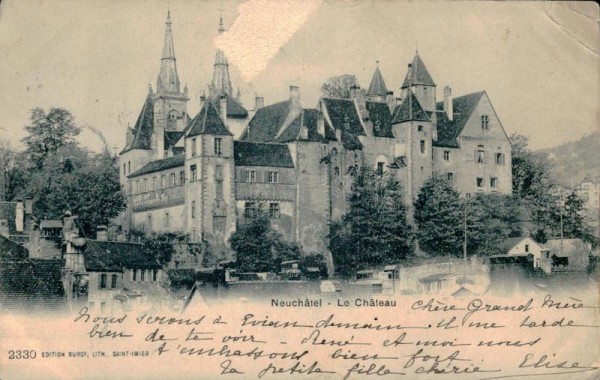 Neuchâtel - Le Château
chère Grand Mère
Nous serons à Evian demain. Il me tarde
bien de te voir - René et moi nous
t'embrassons bien fort
Ta petite fille chérie Elise
2330 EDITION BURGY, LITH., SAINT-IMIER